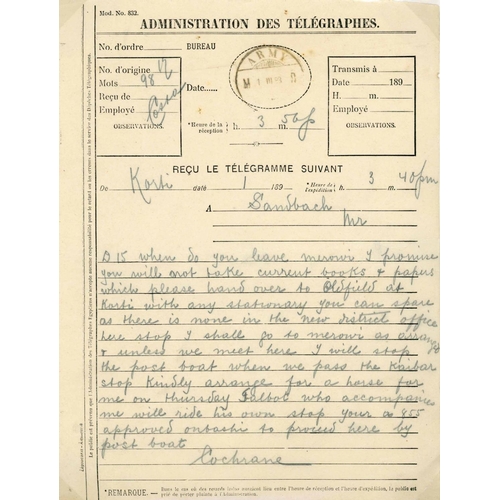 Mod. No. 832.
ADMINISTRATION DES TÉLÉGRAPHES.
No. d'ordre BUREAU
No. d'origine 12
Mots 98
Reçu de
Employé
OBSERVATIONS.
Date
ARMY
*Heure de la réception h. 3 m. 50 p
Transmis à
Date 189
H. m.
Employé
OBSERVATIONS.
REÇU LE TÉLÉGRAMME SUIVANT
De Korti daté 1 189 *Heure de l'expédition h. 3 m. 40 pm
A Sandbach
Mr
D 15 when do you leave merowi I promise
you will not take current books & papers
which please hand over to Oldfield at
Korti with any stationary you can spare
as there is none in the new district office
here stop I shall go to merowi as arrange
& unless we meet here I will stop
the post boat when we pass the Kaibar
stop Kindly arrange for a horse for
me on thursday Talbot who accompanies
me will ride his own stop your a 955
approved onbashi to proceed here by
post boat
Cochrane
*REMARQUE. — Dans le cas où des mots isolés auraient lieu entre l'heure de réception et l'heure d'expédition, le public est prié de porter plainte à l'Administration.